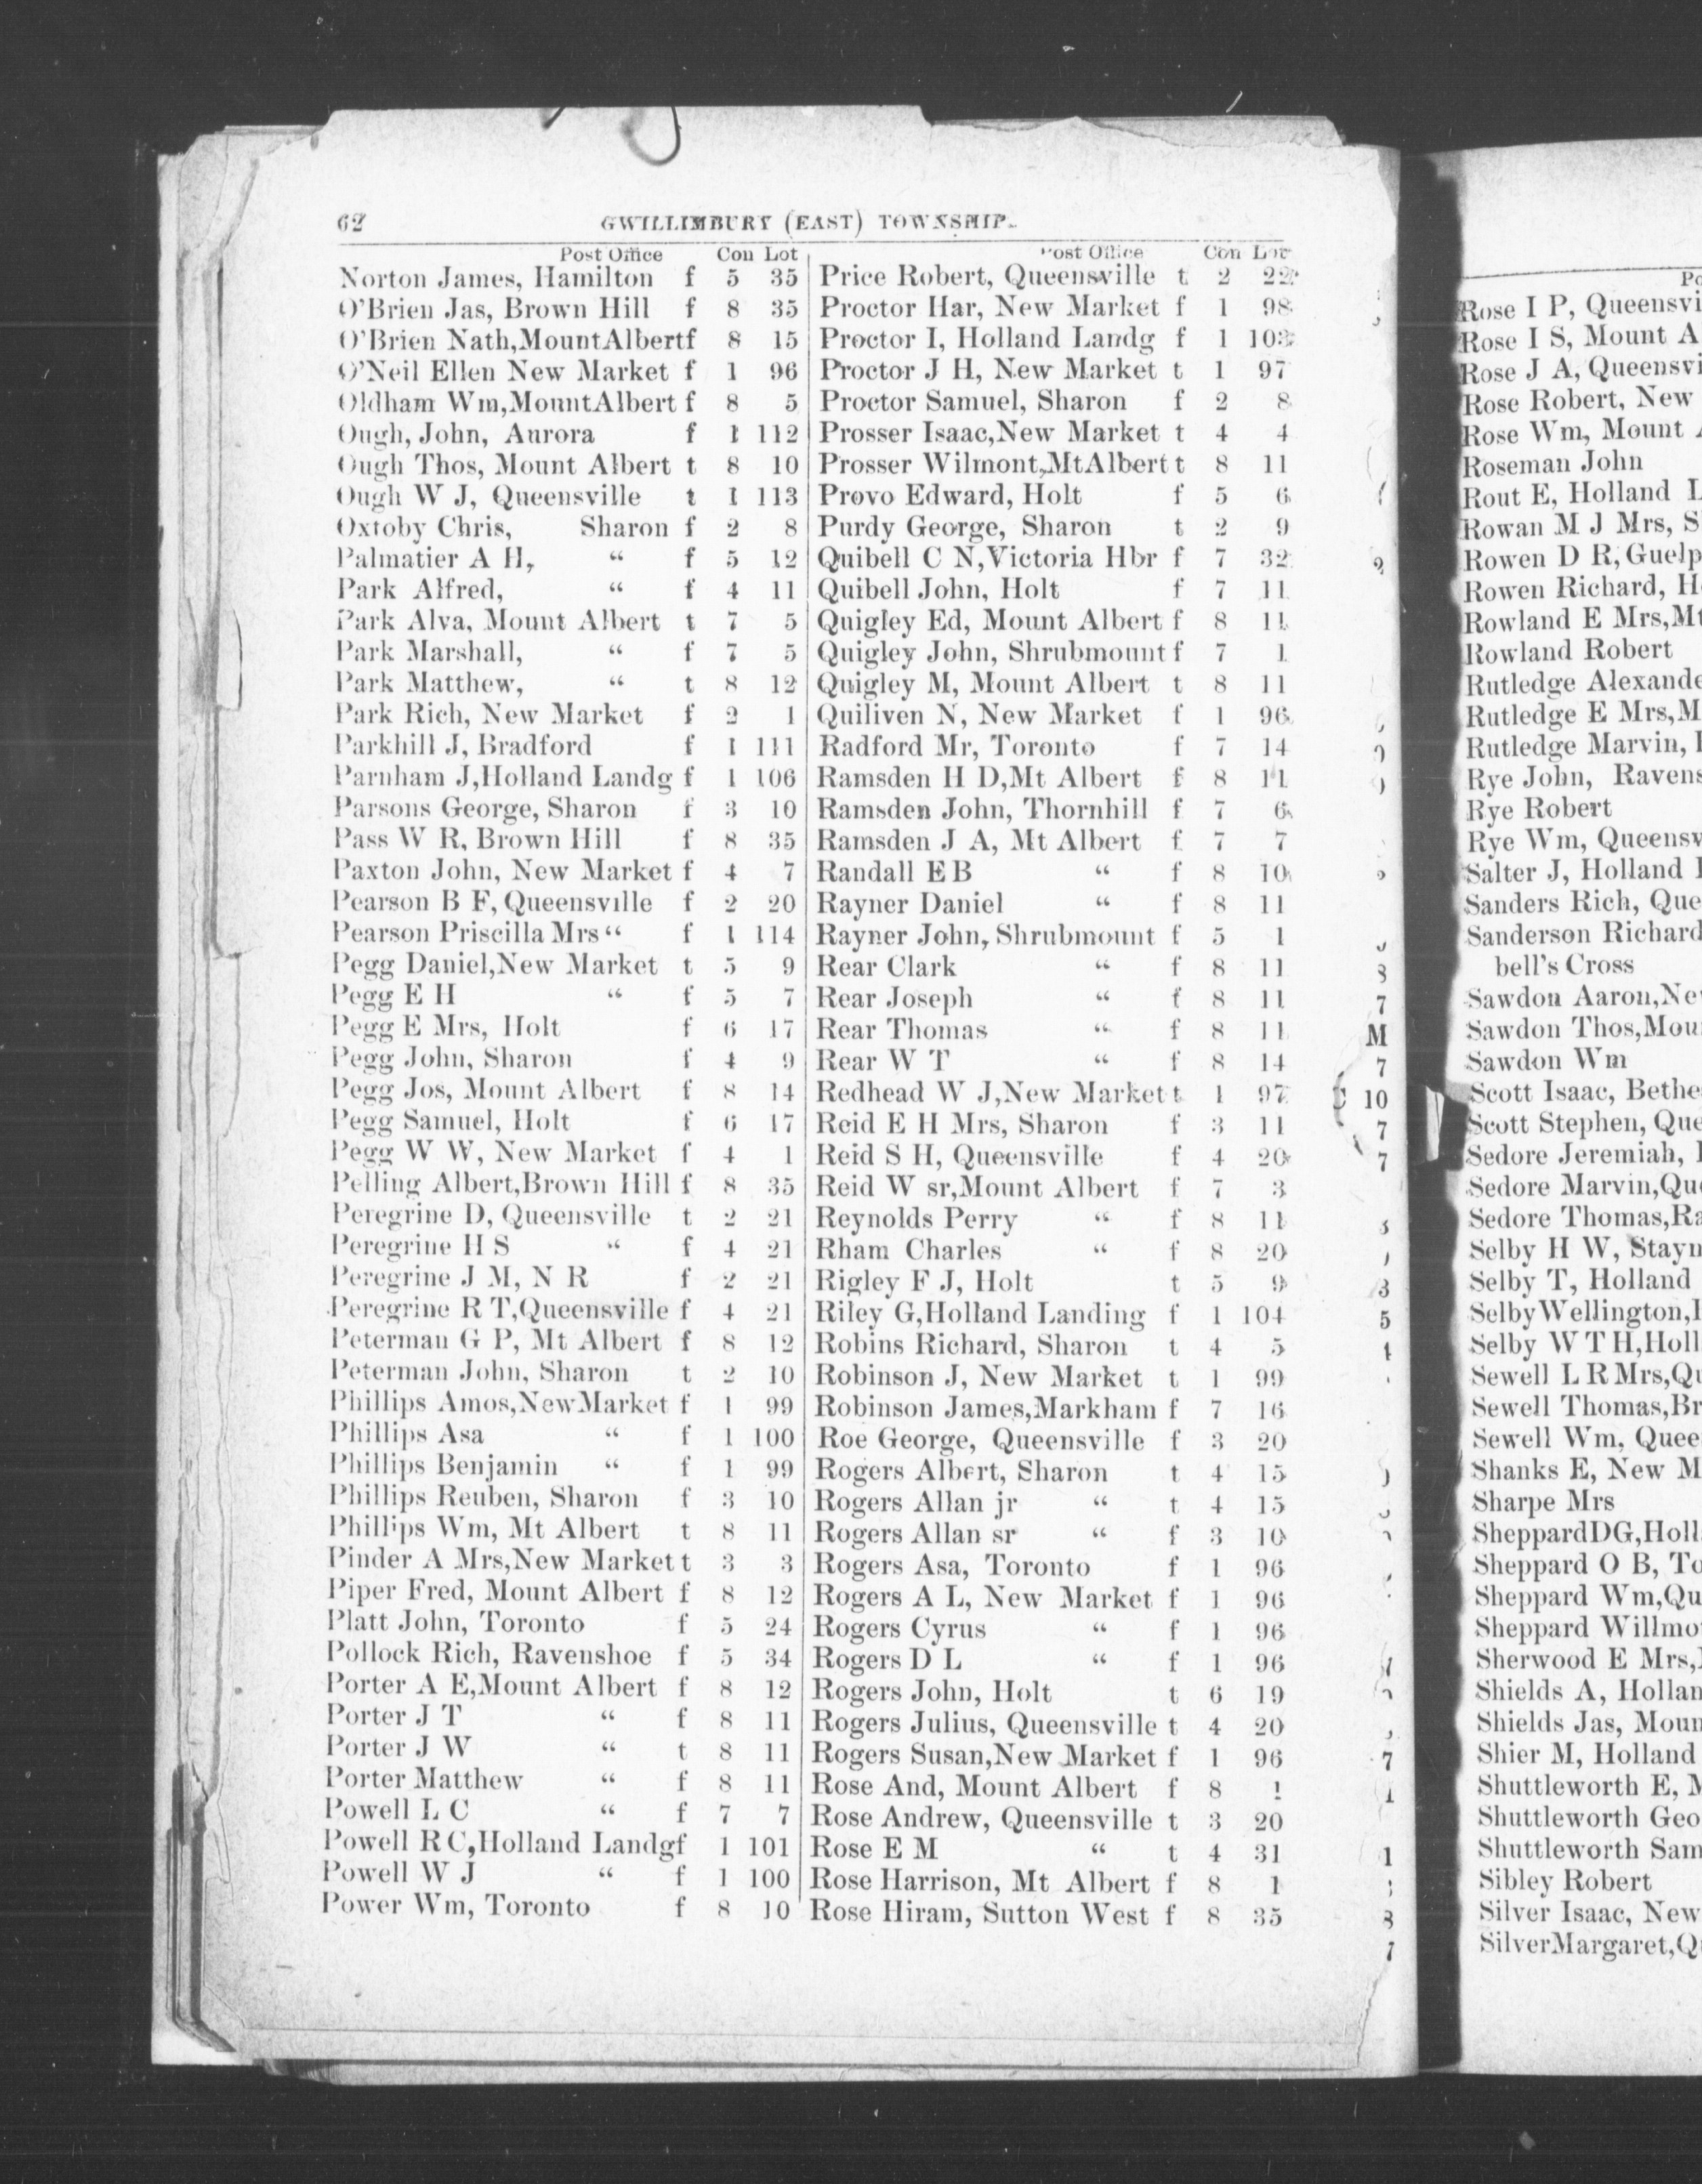 62 GWILLIMBURY (EAST) TOWNSHIP.
Post Office Con Lot
Norton James, Hamilton f 5 35
O'Brien Jas, Brown Hill f 8 35
O'Brien Nath,MountAlbertf 8 15
O'Neil Ellen New Market f 1 96
Oldham Wm,MountAlbert f 8 5
Ough, John, Aurora f 1 112
Ough Thos, Mount Albert t 8 10
Ough W J, Queensville t 1 113
Oxtoby Chris, Sharon f 2 8
Palmatier A H, “ f 5 12
Park Alfred, “ f 4 11
Park Alva, Mount Albert t 7 5
Park Marshall, “ f 7 5
Park Matthew, “ t 8 12
Park Rich, New Market f 2 1
Parkhill J, Bradford f 1 111
Parnham J,Holland Landg f 1 106
Parsons George, Sharon f 3 10
Pass W R, Brown Hill f 8 35
Paxton John, New Market f 4 7
Pearson B F, Queensville f 2 20
Pearson Priscilla Mrs “ f 1 114
Pegg Daniel,New Market t 5 9
Pegg E H “ f 5 7
Pegg E Mrs, Holt f 6 17
Pegg John, Sharon f 4 9
Pegg Jos, Mount Albert f 8 14
Pegg Samuel, Holt f 6 17
Pegg W W, New Market f 4 1
Pelling Albert,Brown Hill f 8 35
Peregrine D, Queensville t 2 21
Peregrine H S “ f 4 21
Peregrine J M, N R f 2 21
Peregrine R T,Queensville f 4 21
Peterman G P, Mt Albert f 8 12
Peterman John, Sharon t 2 10
Phillips Amos,NewMarket f 1 99
Phillips Asa “ f 1 100
Phillips Benjamin “ f 1 99
Phillips Reuben, Sharon f 3 10
Phillips Wm, Mt Albert t 8 11
Pinder A Mrs,New Market t 3 3
Piper Fred, Mount Albert f 8 12
Platt John, Toronto f 5 24
Pollock Rich, Ravenshoe f 5 34
Porter A E,Mount Albert f 8 12
Porter J T “ f 8 11
Porter J W “ t 8 11
Porter Matthew “ f 8 11
Powell L C “ f 7 7
Powell R C,Holland Landgf 1 101
Powell W J “ f 1 100
Power Wm, Toronto f 8 10
Post Office Con Lot
Price Robert, Queensville t 2 22
Proctor Har, New Market f 1 98
Proctor I, Holland Landg f 1 103
Proctor J H, New Market t 1 97
Proctor Samuel, Sharon f 2 8
Prosser Isaac,New Market t 4 4
Prosser Wilmont,MtAlbert t 8 11
Provo Edward, Holt f 5 6
Purdy George, Sharon t 2 9
Quibell C N,Victoria Hbr f 7 32
Quibell John, Holt f 7 11
Quigley Ed, Mount Albert f 8 11
Quigley John, Shrubmount f 7 1
Quigley M, Mount Albert t 8 11
Quiliven N, New Market f 1 96
Radford Mr, Toronto f 7 14
Ramsden H D,Mt Albert f 8 11
Ramsden John, Thornhill f 7 6
Ramsden J A, Mt Albert f 7 7
Randall E B “ f 8 10
Rayner Daniel “ f 8 11
Rayner John, Shrubmount f 5 1
Rear Clark “ f 8 11
Rear Joseph “ f 8 11
Rear Thomas “ f 8 11
Rear W T “ f 8 14
Redhead W J,New Market t 1 97
Reid E H Mrs, Sharon f 3 11
Reid S H, Queensville f 4 20
Reid W sr,Mount Albert f 7 3
Reynolds Perry “ f 8 11
Rham Charles “ f 8 20
Rigley F J, Holt t 5 9
Riley G,Holland Landing f 1 104
Robins Richard, Sharon t 4 5
Robinson J, New Market t 1 99
Robinson James,Markham f 7 16
Roe George, Queensville f 3 20
Rogers Albert, Sharon t 4 15
Rogers Allan jr “ t 4 15
Rogers Allan sr “ f 3 10
Rogers Asa, Toronto f 1 96
Rogers A L, New Market f 1 96
Rogers Cyrus “ f 1 96
Rogers D L “ f 1 96
Rogers John, Holt t 6 19
Rogers Julius, Queensville t 4 20
Rogers Susan,New Market f 1 96
Rose And, Mount Albert f 8 1
Rose Andrew, Queensville t 3 20
Rose E M “ t 4 31
Rose Harrison, Mt Albert f 8 1
Rose Hiram, Sutton West f 8 35
8
7
M
7
10
7
7
3
5
7
1
8
7
Po
Rose I P, Queensvi
Rose I S, Mount A
Rose J A, Queensvi
Rose Robert, New
Rose Wm, Mount
Roseman John
Rout E, Holland L
Rowan M J Mrs, S
Rowen D R, Guelp
Rowen Richard, H
Rowland E Mrs,Mt
Rowland Robert
Rutledge Alexande
Rutledge E Mrs,M
Rutledge Marvin,
Rye John, Ravens
Rye Robert
Rye Wm, Queensv
Salter J, Holland
Sanders Rich, Que
Sanderson Richard
bell's Cross
Sawdon Aaron,Ne
Sawdon Thos,Mou
Sawdon Wm
Scott Isaac, Bethe
Scott Stephen, Que
Sedore Jeremiah,
Sedore Marvin,Qu
Sedore Thomas,Ra
Selby H W, Stayn
Selby T, Holland
SelbyWellington,
Selby W T H,Holl
Sewell L R Mrs,Qu
Sewell Thomas,Br
Sewell Wm, Quee
Shanks E, New M
Sharpe Mrs
SheppardDG,Holl
Sheppard O B, To
Sheppard Wm,Qu
Sheppard Willmo
Sherwood E Mrs,
Shields A, Hollan
Shields Jas, Moun
Shier M, Holland
Shuttleworth E, M
Shuttleworth Geo
Shuttleworth Sam
Sibley Robert
Silver Isaac, New
SilverMargaret,Q